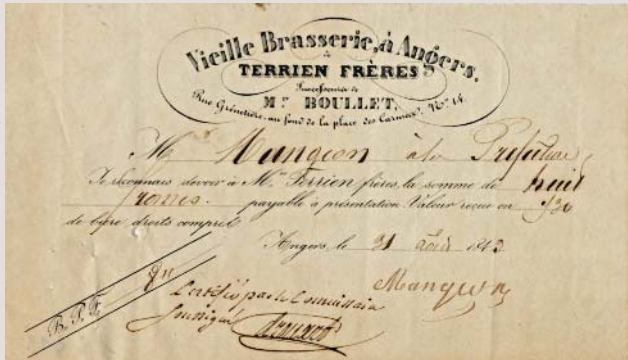 Vieille Brasserie, à Angers,
de
TERRIEN FRÈRES
Successeurs de
Mr. BOULLET,
Rue Grénetière, au fond de la place des Carmes, No. 14.
M. Mangeon à la Préfecture
Je reconnais devoir à Mrs. Terrien frères, la somme de huit
francs payable à présentation Valeur reçue en 1/30
de bière droits compris
Angers, le 31 août 1843
B. P. F. 8"
Mangeon
Certifié par le Commissaire
soussigné